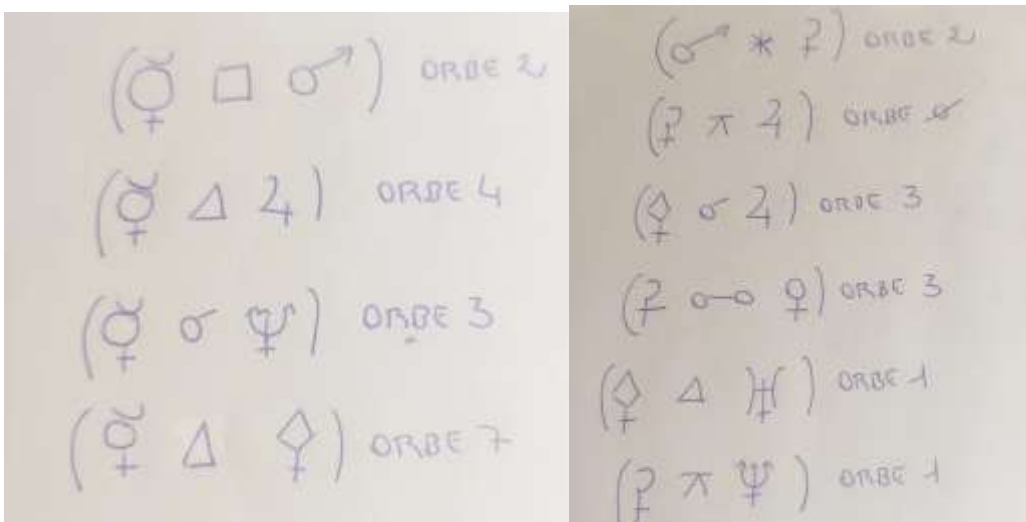 (☿ □ ♂) ORBE 2
(☿ △ ♃) ORBE 4
(☿ ☌ ♆) ORBE 3
(☿ △ ⚸) ORBE 7
(♂ ⚹ ?) ORBE 2
(? ⚻ ♃) ORBE 0
(⚸ ☌ ♃) ORBE 3
(? ☍ ♀) ORBE 3
(⚸ △ ♅) ORBE 1
(? ⚻ ♆) ORBE 1